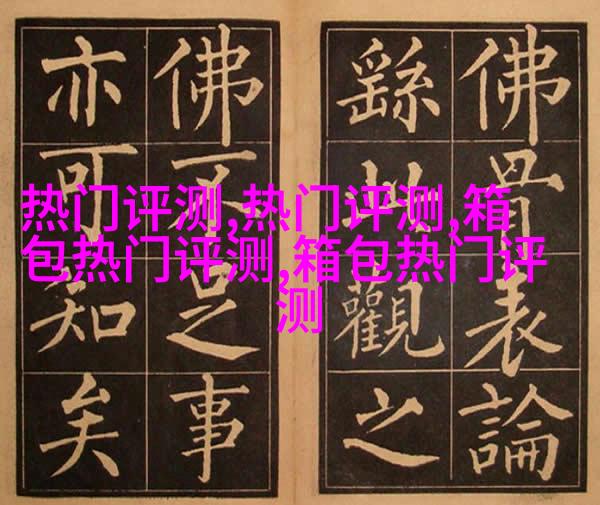 热门评测,热门评测,箱
包热门评测,箱包热门评
测
佛骨表論
繇此觀之
佛不足事
亦可知矣